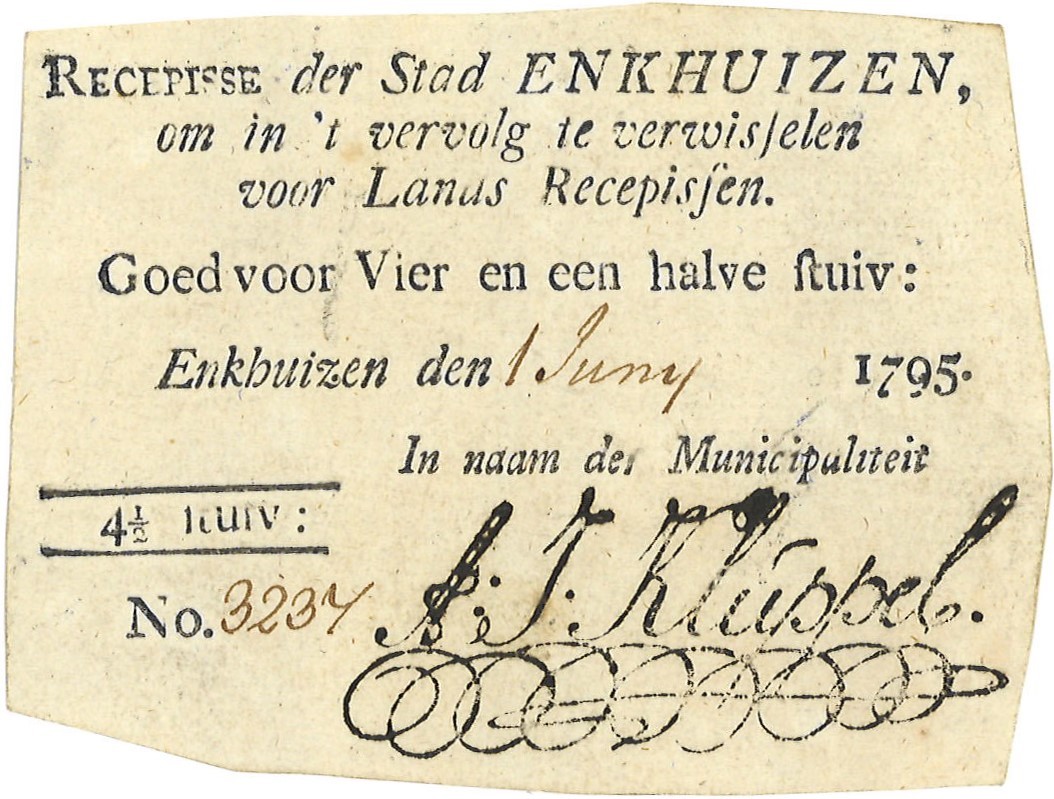 RECEPISSE der Stad ENKHUIZEN,
om in 't vervolg te verwisselen
voor Lands Recepissen.
Goed voor Vier en een halve stuiv:
Enkhuizen den 1 Juny 1795.
In naam der Municipaliteit
4½ stuiv:
No. 3237
A: J: Kluppel.